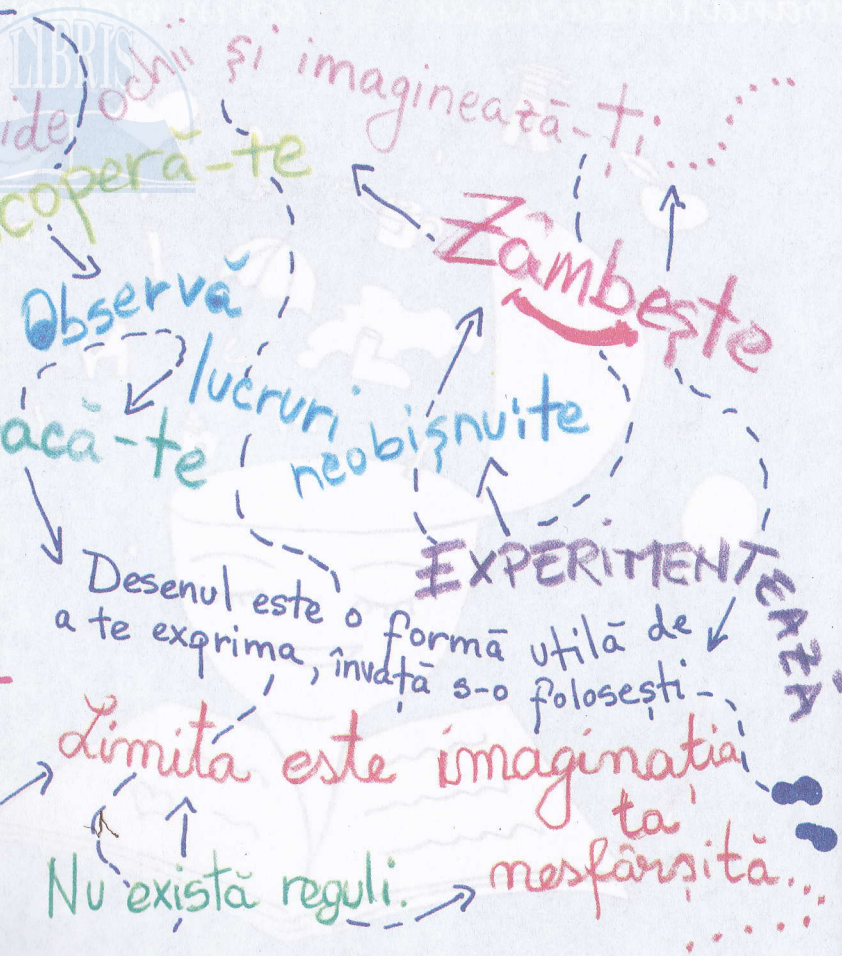 LIBRIS
ide ochii și imaginează-ți
coperă-te
Zâmbește
Observă
lucruri
neobișnuite
acă-te
EXPERIMENTEAZĂ
Desenul este o formă utilă de
a te exprima, învață s-o folosești
Limita este imaginația
ta
nesfârșită...
Nu există reguli.